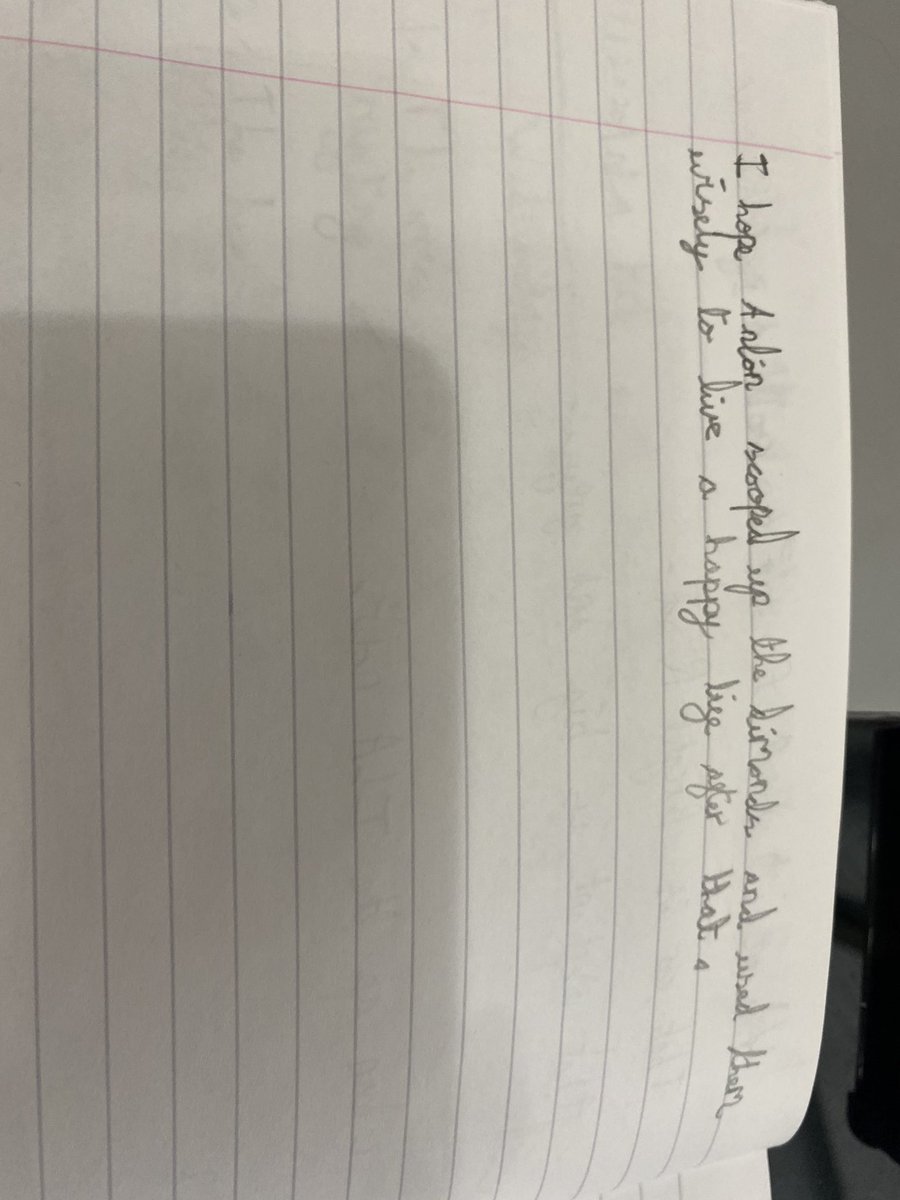 I hope Anlón scooped up the dimonds and used them
wisely to live a happy life after that.